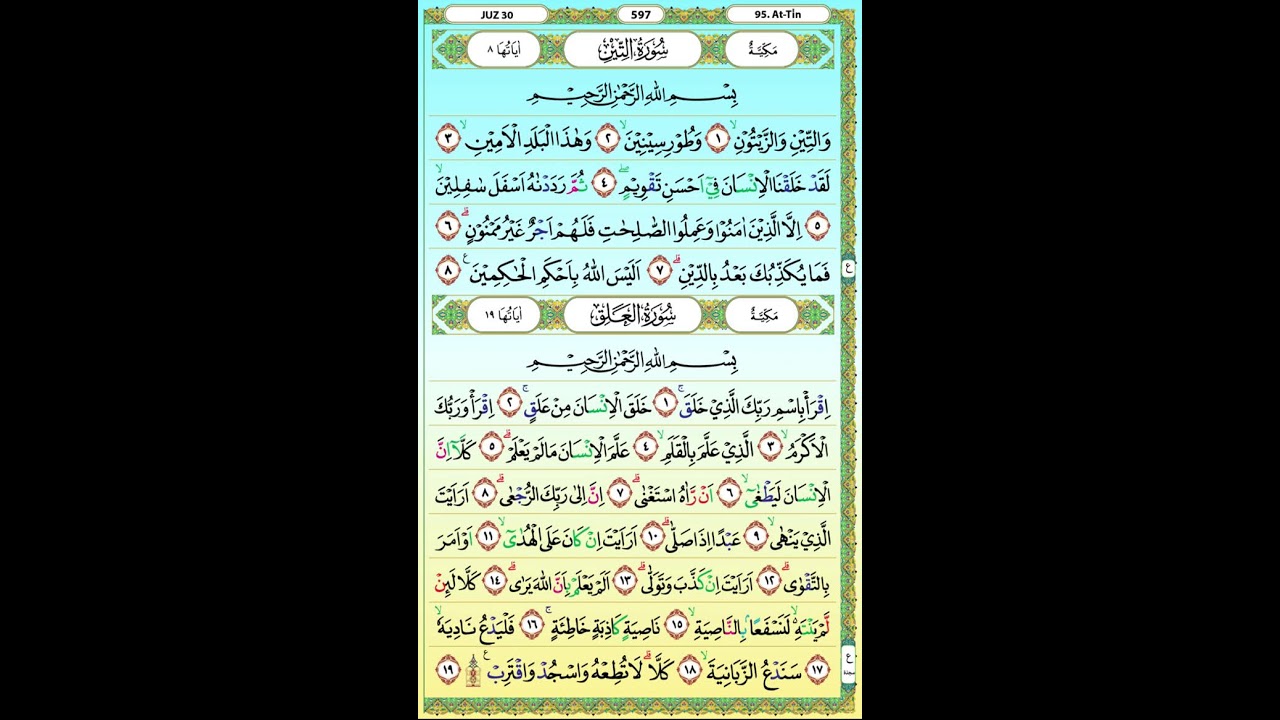 JUZ 30 597 95. At-Tîn
مَكِيَّةٌ سُوْرَةُ التِّيْنِ اٰيَاتُهَا ٨
بِسْمِ اللهِ الرَّحْمٰنِ الرَّحِيْمِ
وَالتِّيْنِ وَالزَّيْتُوْنِۙ ١ وَطُوْرِ سِيْنِيْنَۙ ٢ وَهٰذَا الْبَلَدِ الْاَمِيْنِۙ ٣
لَقَدْ خَلَقْنَا الْاِنْسَانَ فِيْٓ اَحْسَنِ تَقْوِيْمٍۖ ٤ ثُمَّ رَدَدْنٰهُ اَسْفَلَ سٰفِلِيْنَۙ
٥ اِلَّا الَّذِيْنَ اٰمَنُوْا وَعَمِلُوا الصّٰلِحٰتِ فَلَهُمْ اَجْرٌ غَيْرُ مَمْنُوْنٍۗ ٦
فَمَا يُكَذِّبُكَ بَعْدُ بِالدِّيْنِۗ ٧ اَلَيْسَ اللهُ بِاَحْكَمِ الْحٰكِمِيْنَ ࣖ ٨
ع
مَكِيَّةٌ سُوْرَةُ الْعَلَقِ اٰيَاتُهَا ١٩
بِسْمِ اللهِ الرَّحْمٰنِ الرَّحِيْمِ
اِقْرَأْ بِاسْمِ رَبِّكَ الَّذِيْ خَلَقَۚ ١ خَلَقَ الْاِنْسَانَ مِنْ عَلَقٍۚ ٢ اِقْرَأْ وَرَبُّكَ
الْاَكْرَمُۙ ٣ الَّذِيْ عَلَّمَ بِالْقَلَمِۙ ٤ عَلَّمَ الْاِنْسَانَ مَا لَمْ يَعْلَمْۗ ٥ كَلَّآ اِنَّ
الْاِنْسَانَ لَيَطْغٰىٓۙ ٦ اَنْ رَّاٰهُ اسْتَغْنٰىۗ ٧ اِنَّ اِلٰى رَبِّكَ الرُّجْعٰىۗ ٨ اَرَاَيْتَ
الَّذِيْ يَنْهٰىۙ ٩ عَبْدًا اِذَا صَلّٰىۗ ١٠ اَرَاَيْتَ اِنْ كَانَ عَلَى الْهُدٰىٓۙ ١١ اَوْ اَمَرَ
بِالتَّقْوٰىۗ ١٢ اَرَاَيْتَ اِنْ كَذَّبَ وَتَوَلّٰىۗ ١٣ اَلَمْ يَعْلَمْ بِاَنَّ اللهَ يَرٰىۗ ١٤ كَلَّا لَئِنْ
لَّمْ يَنْتَهِۙ لَنَسْفَعًاۢ بِالنَّاصِيَةِۙ ١٥ نَاصِيَةٍ كَاذِبَةٍ خَاطِئَةٍۚ ١٦ فَلْيَدْعُ نَادِيَهٗۙ
١٧ سَنَدْعُ الزَّبَانِيَةَۙ ١٨ كَلَّاۗ لَا تُطِعْهُ وَاسْجُدْ وَاقْتَرِبْ ࣖ ۩ ١٩
ع
سجدة